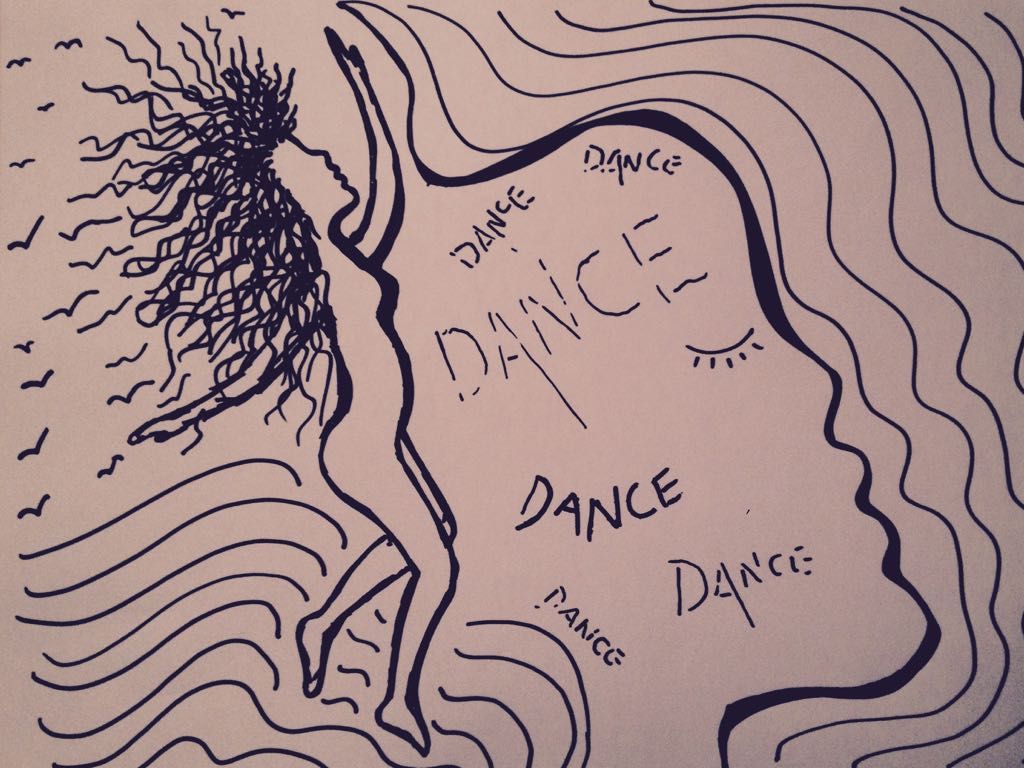 DANCE
DANCE
DANCE
DANCE
DANCE
DANCE